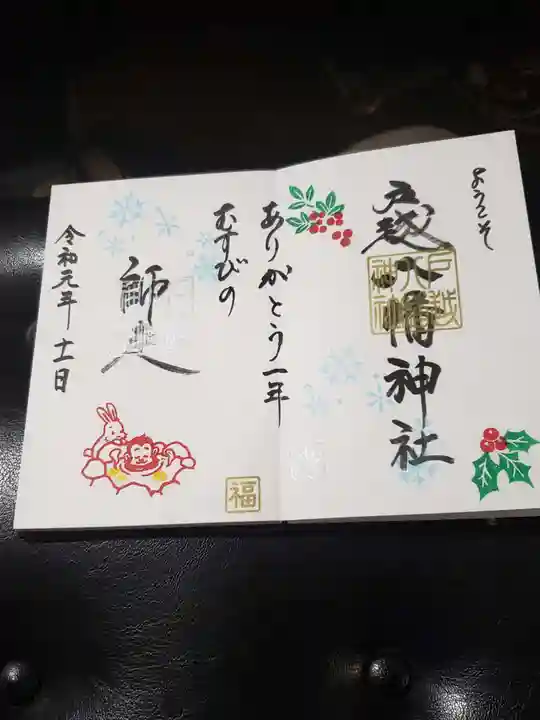 ようこそ
戸越八幡神社
戸越
八幡
神社
ありがとう一年
むすびの
師走
令和元年十二日
福